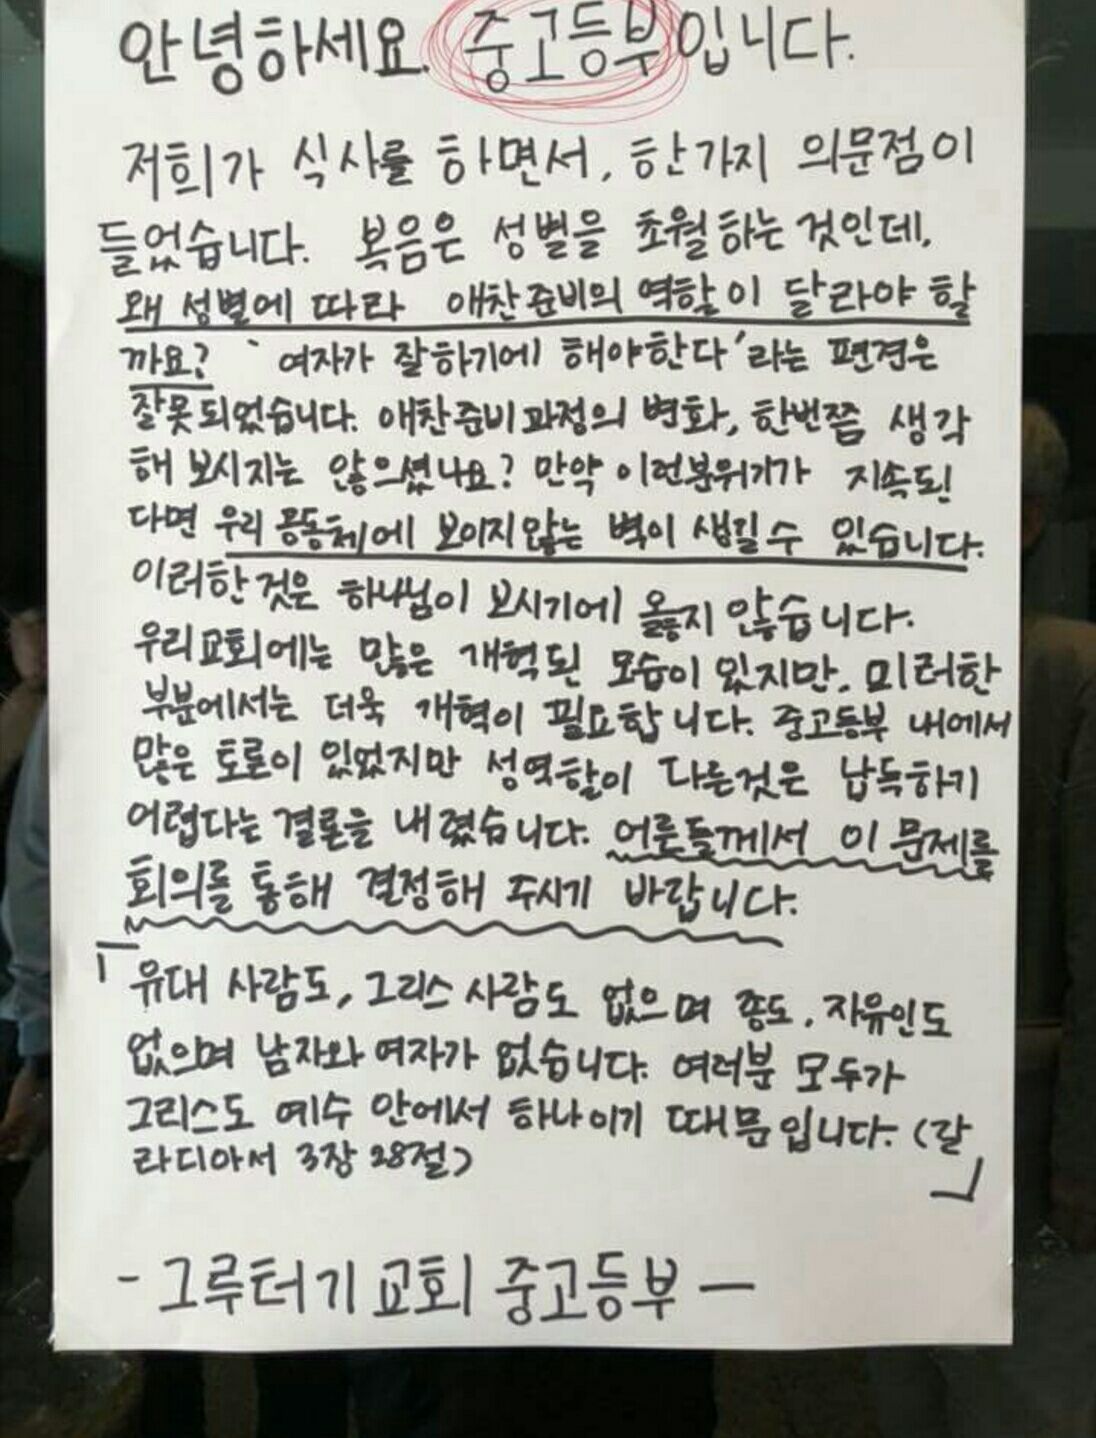 안녕하세요. 중고등부입니다.
저희가 식사를 하면서, 한가지 의문점이
들었습니다. 복음은 성별을 초월하는 것인데,
왜 성별에 따라 애찬준비의 역할이 달라야 할
까요? '여자가 잘하기에 해야한다'라는 편견은
잘못되었습니다. 애찬준비과정의 변화, 한번쯤 생각
해 보시지는 않으셨나요? 만약 이런분위기가 지속된
다면 우리 공동체에 보이지않는 벽이 생길 수 있습니다.
이러한것은 하나님이 보시기에 옳지 않습니다.
우리교회에는 많은 개혁된 모습이 있지만, 이러한
부분에서는 더욱 개혁이 필요합니다. 중고등부 내에서
많은 토론이 있었지만 성역할이 다른것은 납득하기
어렵다는 결론을 내렸습니다. 어른들께서 이 문제를
회의를 통해 결정해 주시기 바랍니다.
「유대 사람도, 그리스 사람도 없으며 종도, 자유인도
없으며 남자와 여자가 없습니다. 여러분 모두가
그리스도 예수 안에서 하나이기 때문입니다. (갈
라디아서 3장 28절)」
- 그루터기교회 중고등부 -